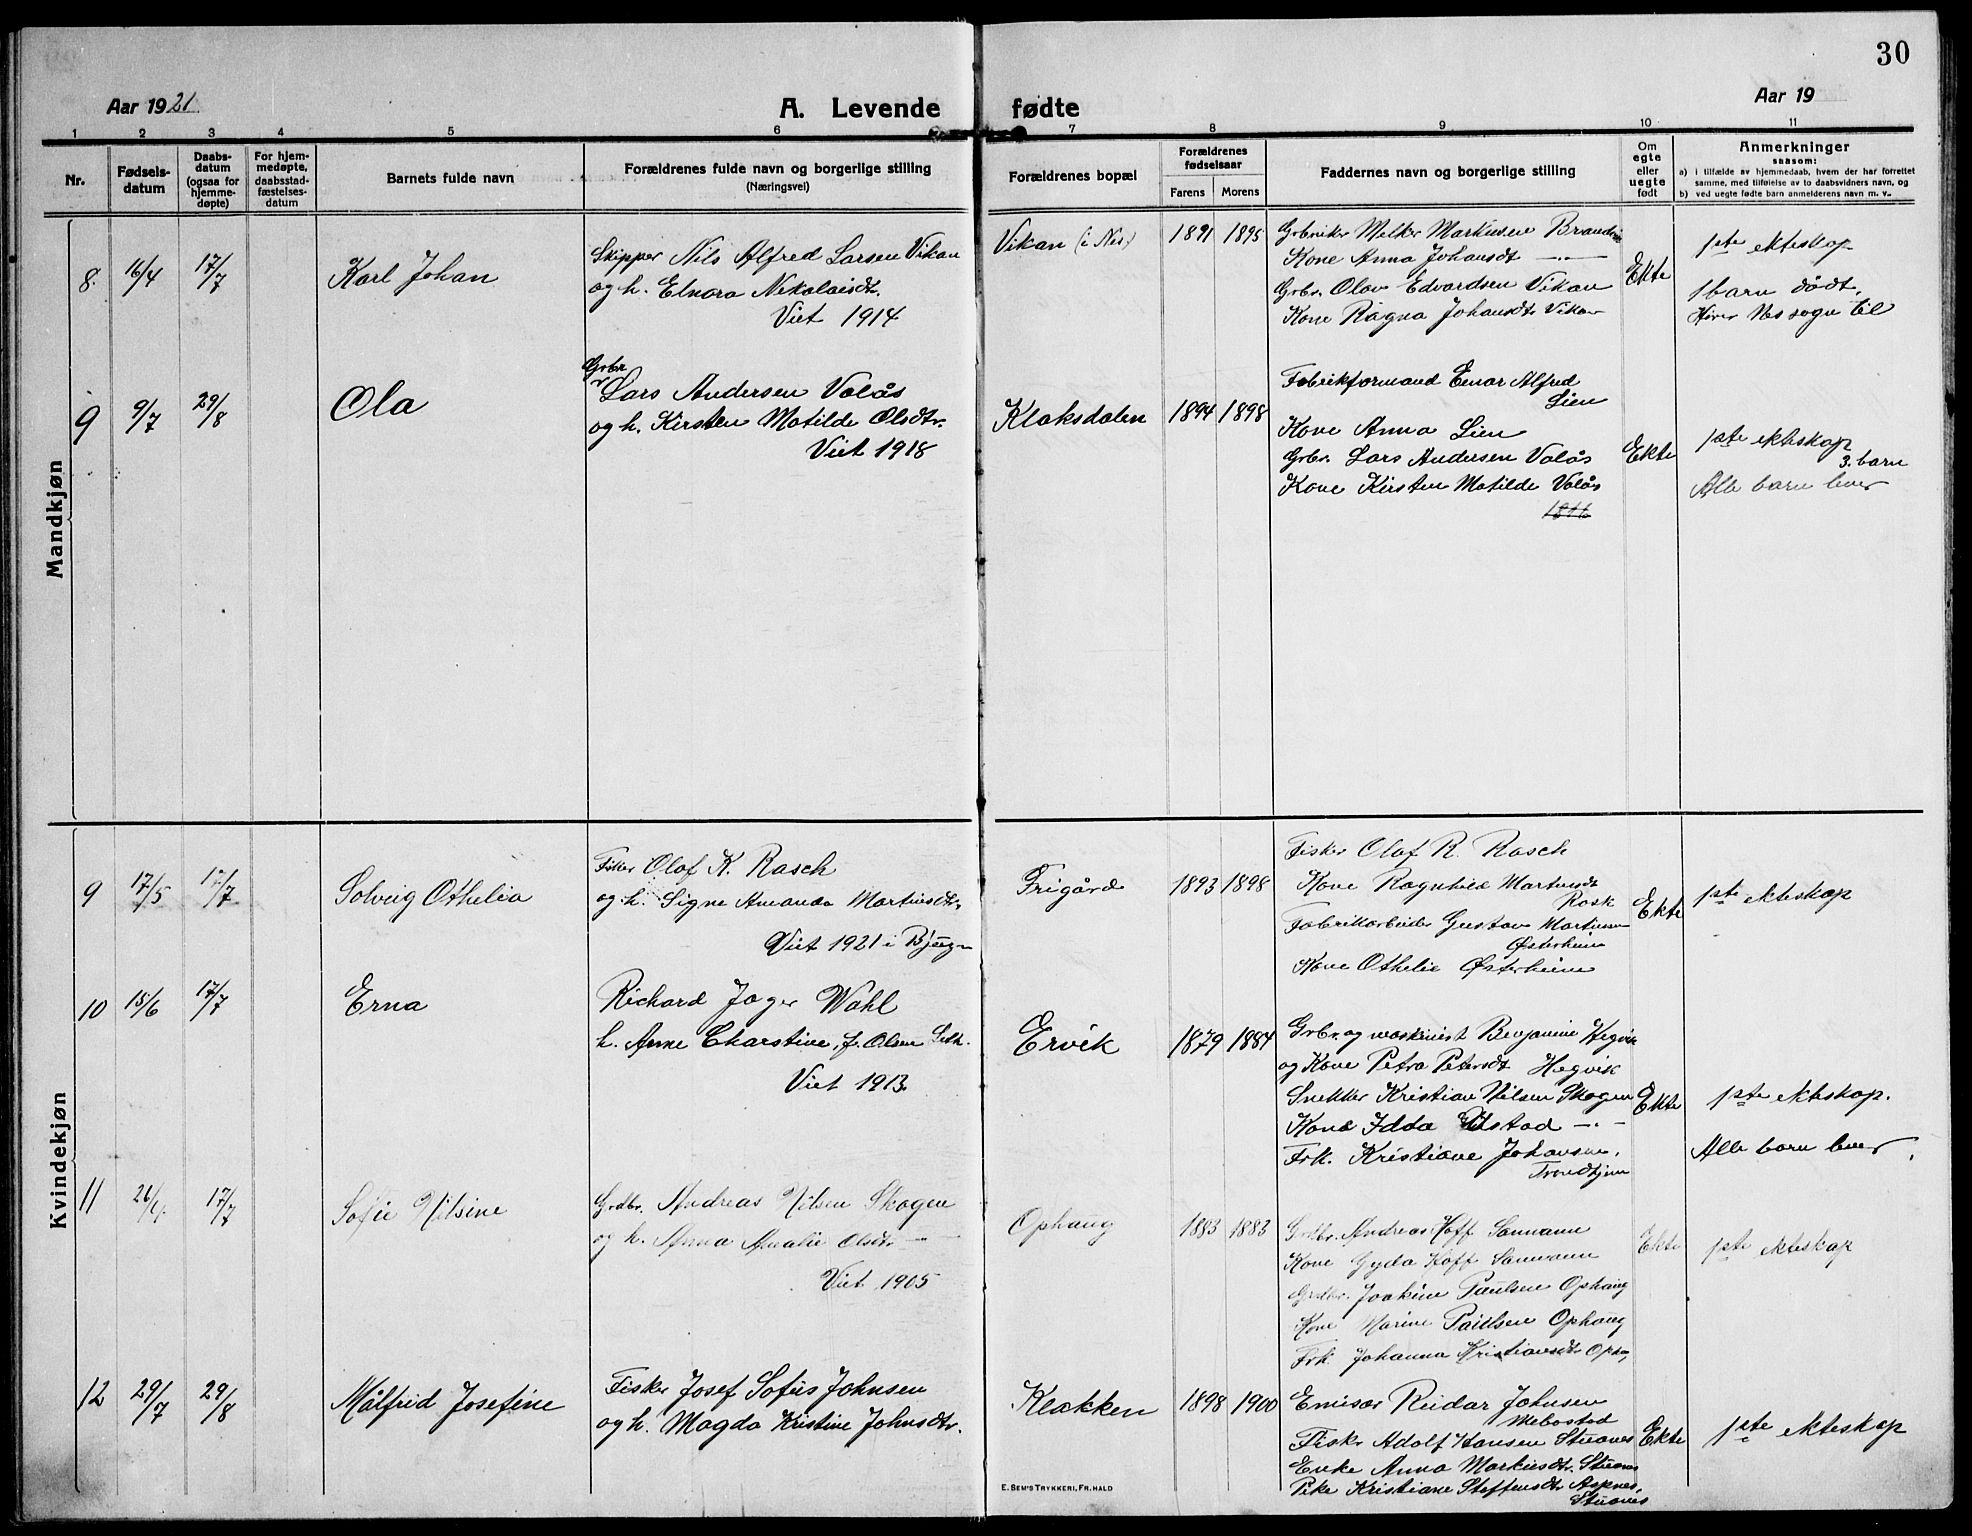 30
Aar 1921
A. Levende fødte
Aar 19
1 2 3 4 5 6 7 8 9 10 11
Nr.
Fødsels-
datum
Daabs-
datum
(ogsaa for
hjemme-
døpte)
For hjem-
medøpte,
daabsstad-
fæstelses-
datum
Barnets fulde navn
Forældrenes fulde navn og borgerlige stilling
(Næringsvei)
Forældrenes bopæl
Forældrenes
fødselsaar
Farens Morens
Faddernes navn og borgerlige stilling
Om
egte
eller
uegte
født
Anmerkninger
saasom:
a) i tilfælde av hjemmedaab, hvem der har forrettet
samme, med tilføielse av to daabsvidners navn, og
b) ved uegte fødte barn anmelderens navn m. v..
Mandkjøn
8. 16/4 17/7 Karl Johan
Skipper Nils Alfred Larsen Vikan
og h. Elnora Nikolaisdtr.
Viet 1914
Vikan (i Nes) 1891 1895
Grbruker Melker Markussen
Kone Anna Johansdt —"—
Grbr. Olav Edvardsen Vikan
Kone Ragna Johansdtr Vikan
Ekte
1ste ekteskap
1 barn dödt.
Hører Nes sogn til
9 9/7 29/8 Ola
Grbr
Lars Andersen Valås
og h. Kirsten Matilde Olsdtr.
Viet 1918
Klaksdalen 1894 1898
Fabrikformand Einar Alfred
Lien
Kone Anna Lien
Grbr. Lars Andersen Valås
Kone Kirsten Matilde Valås
Ekte
1ste ekteskap
3. barn
Alle barn lever
Kvindekjøn
9 17/5 17/7 Solveig Othelia
Fisker Olaf K. Rasch
og h. Signe Amanda Martinsdtr.
Viet 1921 i Bjugn
Frigård 1893 1898
Fisker Olaf R. Rasch
Kone Ragnhild Martinsdt
Rask
Fabrikarbeider Gustav Martinsen
Østerheim
Kone Othelie Østerheim
Ekte
1ste ekteskap
10 15/6 17/7 Erna
Richard Jager Wahl
h. Anne Charstine, f. Olsen Seth.
Viet 1913
Ervik 1879 1884
Grbr. og maskinist Benjamine Hegvik
og Kone Petra Petersdt Hegvik
Snekker Kristian Nilsen Skogen
Kone Idda Ustad —"—
Frk. Kristiane Johansen,
Trondhjem
Ekte
1ste ekteskap.
Alle barn lever.
11 17/7 Sofie Nilsine
Grdbr. Andreas Nilsen Skogen
og h. Anna Amalie Olsdtr —"—
Viet 1905
Ophaug 1883 1883
Grdbr. Andreas Hoff Sannann
Kone Gyda Hoff Sannann
Grdbr. Joakim Paulsen Ophaug
Kone Marine Paulsen Ophaug
Frk. Johanna Kristiansdtr Oph.
Ekte
1ste ekteskap
12 29/7 29/8 Målfrid Josefine
Fisker Josef Sofus Johnsen
og h. Magda Kristine Johnsdtr.
Klakken 1898 1900
Emisær Reidar Johnsen
Mebostad
Fisker Adolf Hansen Stuanes
Enke Anna Markusdtr. Stuanes
Pike Kristiane Steffensdtr Aspnes,
Stuanes
Ekte
1ste ekteskap
E. SEM'S TRYKKERI, FR. HALD